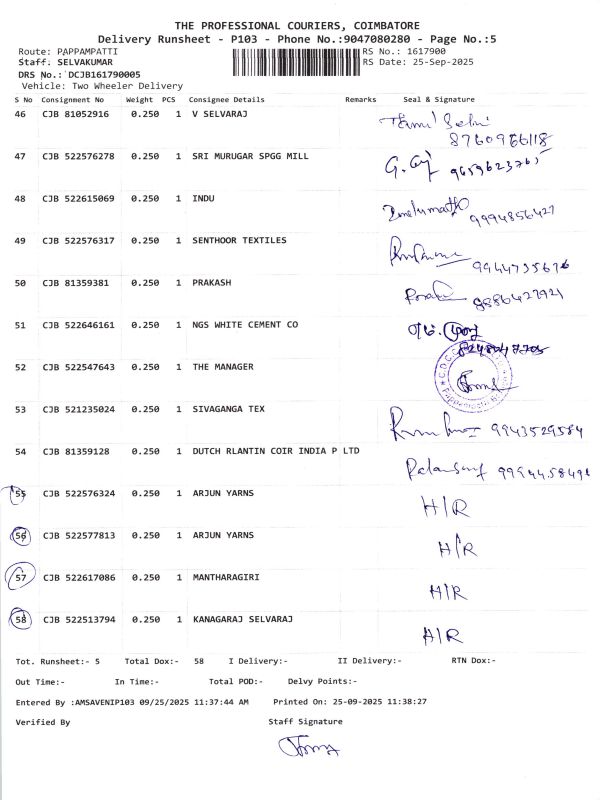 THE PROFESSIONAL COURIERS, COIMBATORE
Delivery Runsheet - P103 - Phone No.:9047080280 - Page No.:5
Route: PAPPAMPATTI RS No.: 1617900
Staff: SELVAKUMAR RS Date: 25-Sep-2025
DRS No.: DCJB161790005
Vehicle: Two Wheeler Delivery
S No Consignment No Weight PCS Consignee Details Remarks Seal & Signature
46 CJB 81052916 0.250 1 V SELVARAJ Tamil Selvi
8760966118
47 CJB 522576278 0.250 1 SRI MURUGAR SPGG MILL 9659623765
48 CJB 522615069 0.250 1 INDU
9994856427
49 CJB 522576317 0.250 1 SENTHOOR TEXTILES
9944735676
50 CJB 81359381 0.250 1 PRAKASH
51 CJB 522646161 0.250 1 NGS WHITE CEMENT CO
52 CJB 522547643 0.250 1 THE MANAGER
53 CJB 521235024 0.250 1 SIVAGANGA TEX 9943529584
54 CJB 81359128 0.250 1 DUTCH RLANTIN COIR INDIA P LTD
55 CJB 522576324 0.250 1 ARJUN YARNS H/R
56 CJB 522577813 0.250 1 ARJUN YARNS H/R
57 CJB 522617086 0.250 1 MANTHARAGIRI H/R
58 CJB 522513794 0.250 1 KANAGARAJ SELVARAJ H/R
Tot. Runsheet:- 5 Total Dox:- 58 I Delivery:- II Delivery:- RTN Dox:-
Out Time:- In Time:- Total POD:- Delvy Points:-
Entered By :AMSAVENIP103 09/25/2025 11:37:44 AM Printed On: 25-09-2025 11:38:27
Verified By Staff Signature